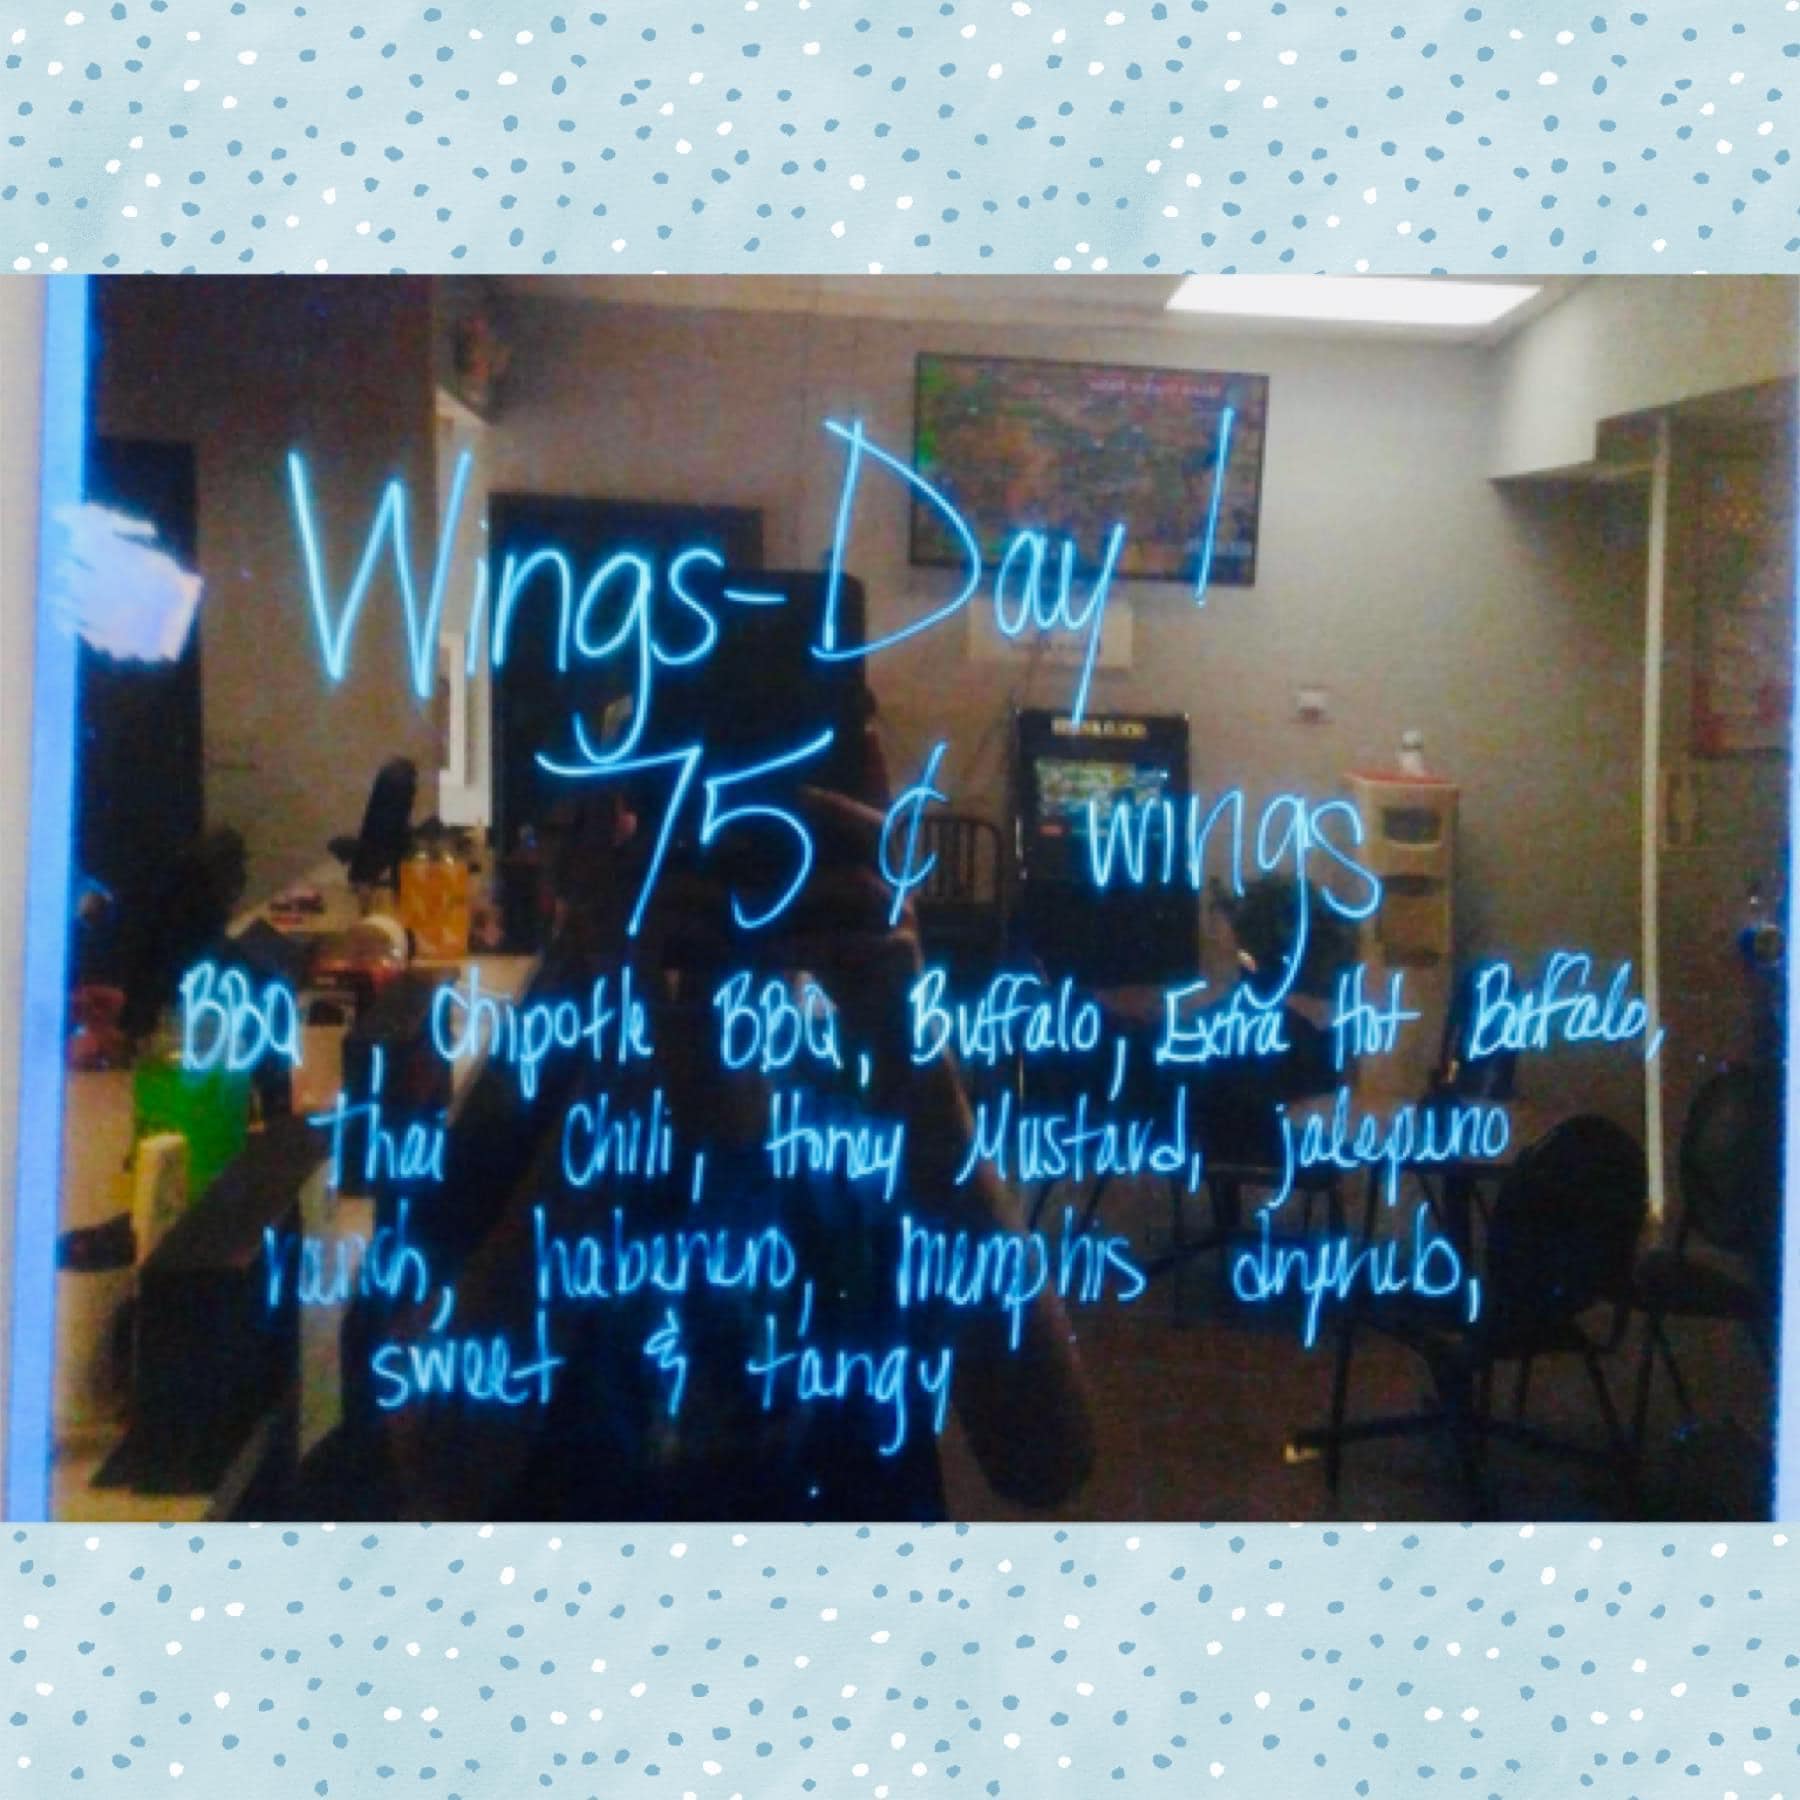 Wings-Day!
75¢ wings
BBQ, Chipotle BBQ, Buffalo, Extra Hot Buffalo,
Thai Chili, Honey Mustard, jalepeno
ranch, habenero, memphis dryrub,
sweet & tangy